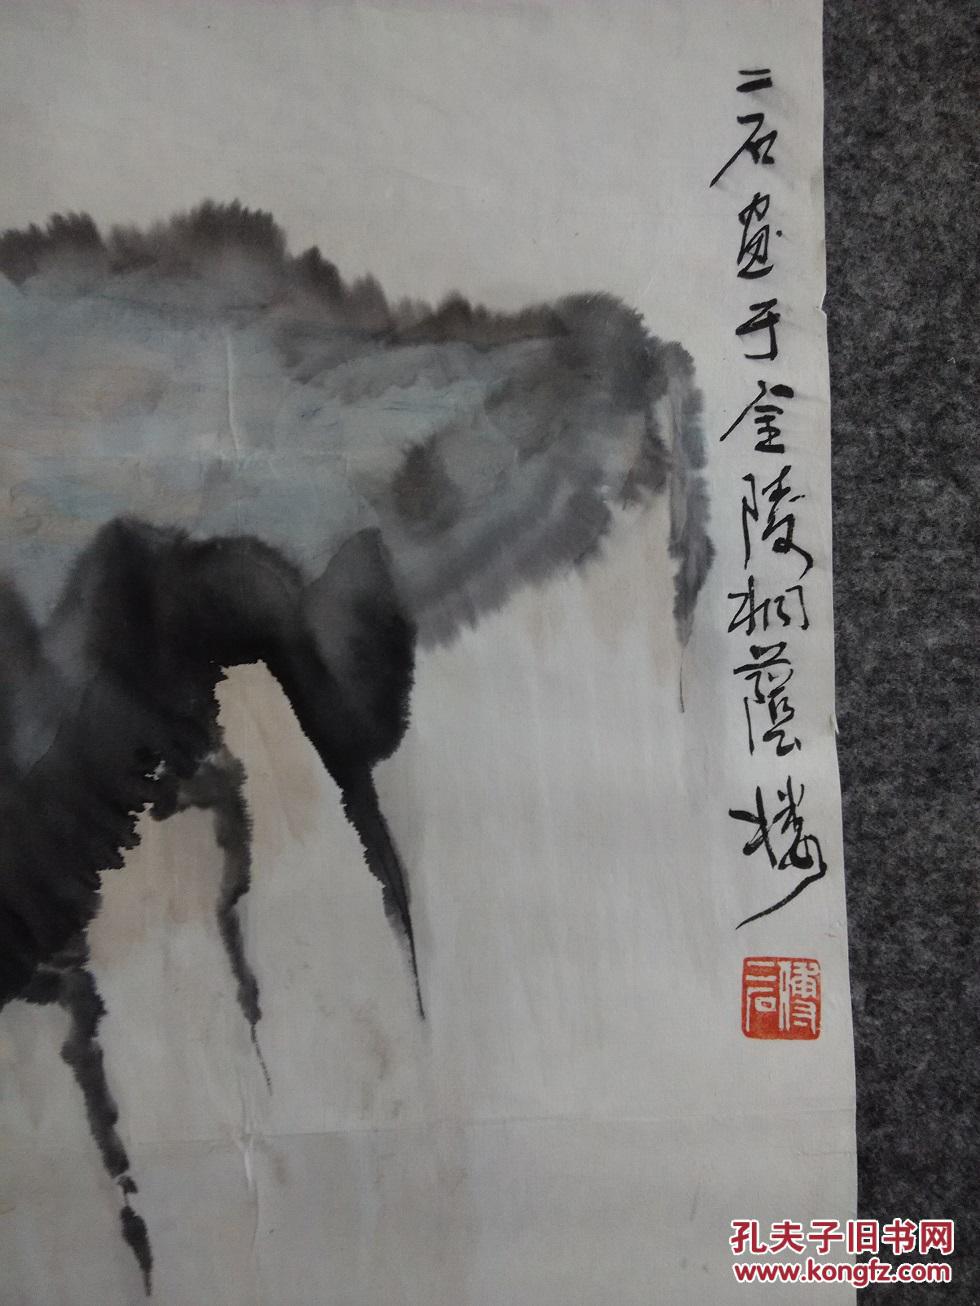 二石画于金陵桐蔭楼
傅二石
孔夫子旧书网
www.kongfz.com